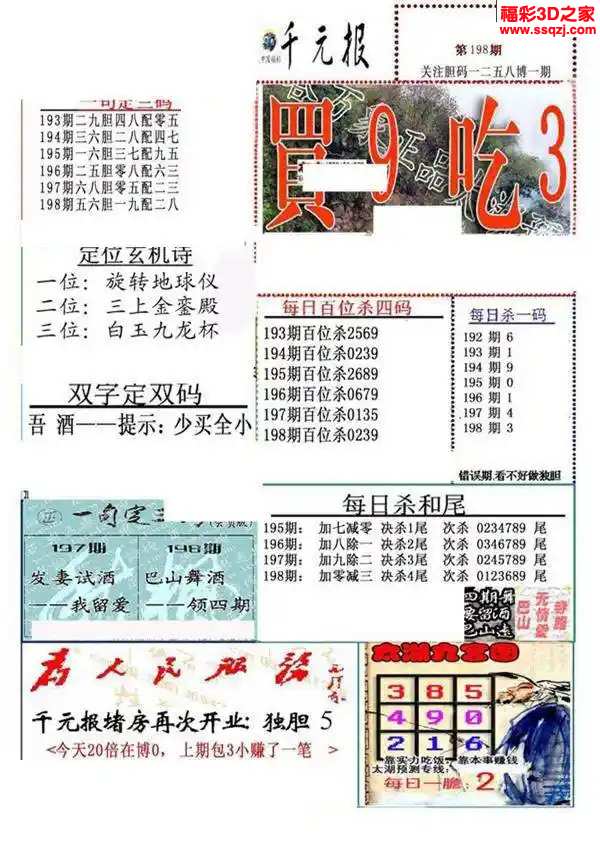 福彩3D之家
www.ssqzj.com
千元报
中国福彩
第198期
关注胆码一二五八博一期
一句定三码
193期二九胆四八配零五
194期三六胆二八配四七
195期一六胆三七配九五
196期二五胆零八配六三
197期六八胆零五配二三
198期五六胆一九配二八
買9吃3
定位玄机诗
一位：旋转地球仪
二位：三上金銮殿
三位：白玉九龙杯
双字定双码
吾 酒——提示：少买全小
每日百位杀四码
193期百位杀2569
194期百位杀0239
195期百位杀2689
196期百位杀0679
197期百位杀0135
198期百位杀0239
每日杀一码
192 期 6
193 期 1
194 期 9
195 期 0
196 期 1
197 期 4
198 期 3
错误期,看不好做独胆
一句定三
197期 198期
发妻试酒 巴山舞酒
——我留爱 ——领四期
每日杀和尾
195期： 加七减零 决杀1尾 次杀 0234789 尾
196期： 加八除一 决杀2尾 次杀 0346789 尾
197期： 加九除二 决杀3尾 次杀 0245789 尾
198期： 加零减三 决杀4尾 次杀 0123689 尾
四期舞
妻留酒
巴山
无情爱
巴山
为人民服务
千元报堵房再次开业：独胆 5
<今天20倍在博0，上期包3小赚了一笔 >
太湖九宫图
3 8 5
4 9 0
2 1 6
靠实力吃饭，靠本事赚钱
太湖预测专线：
每日一胆：2